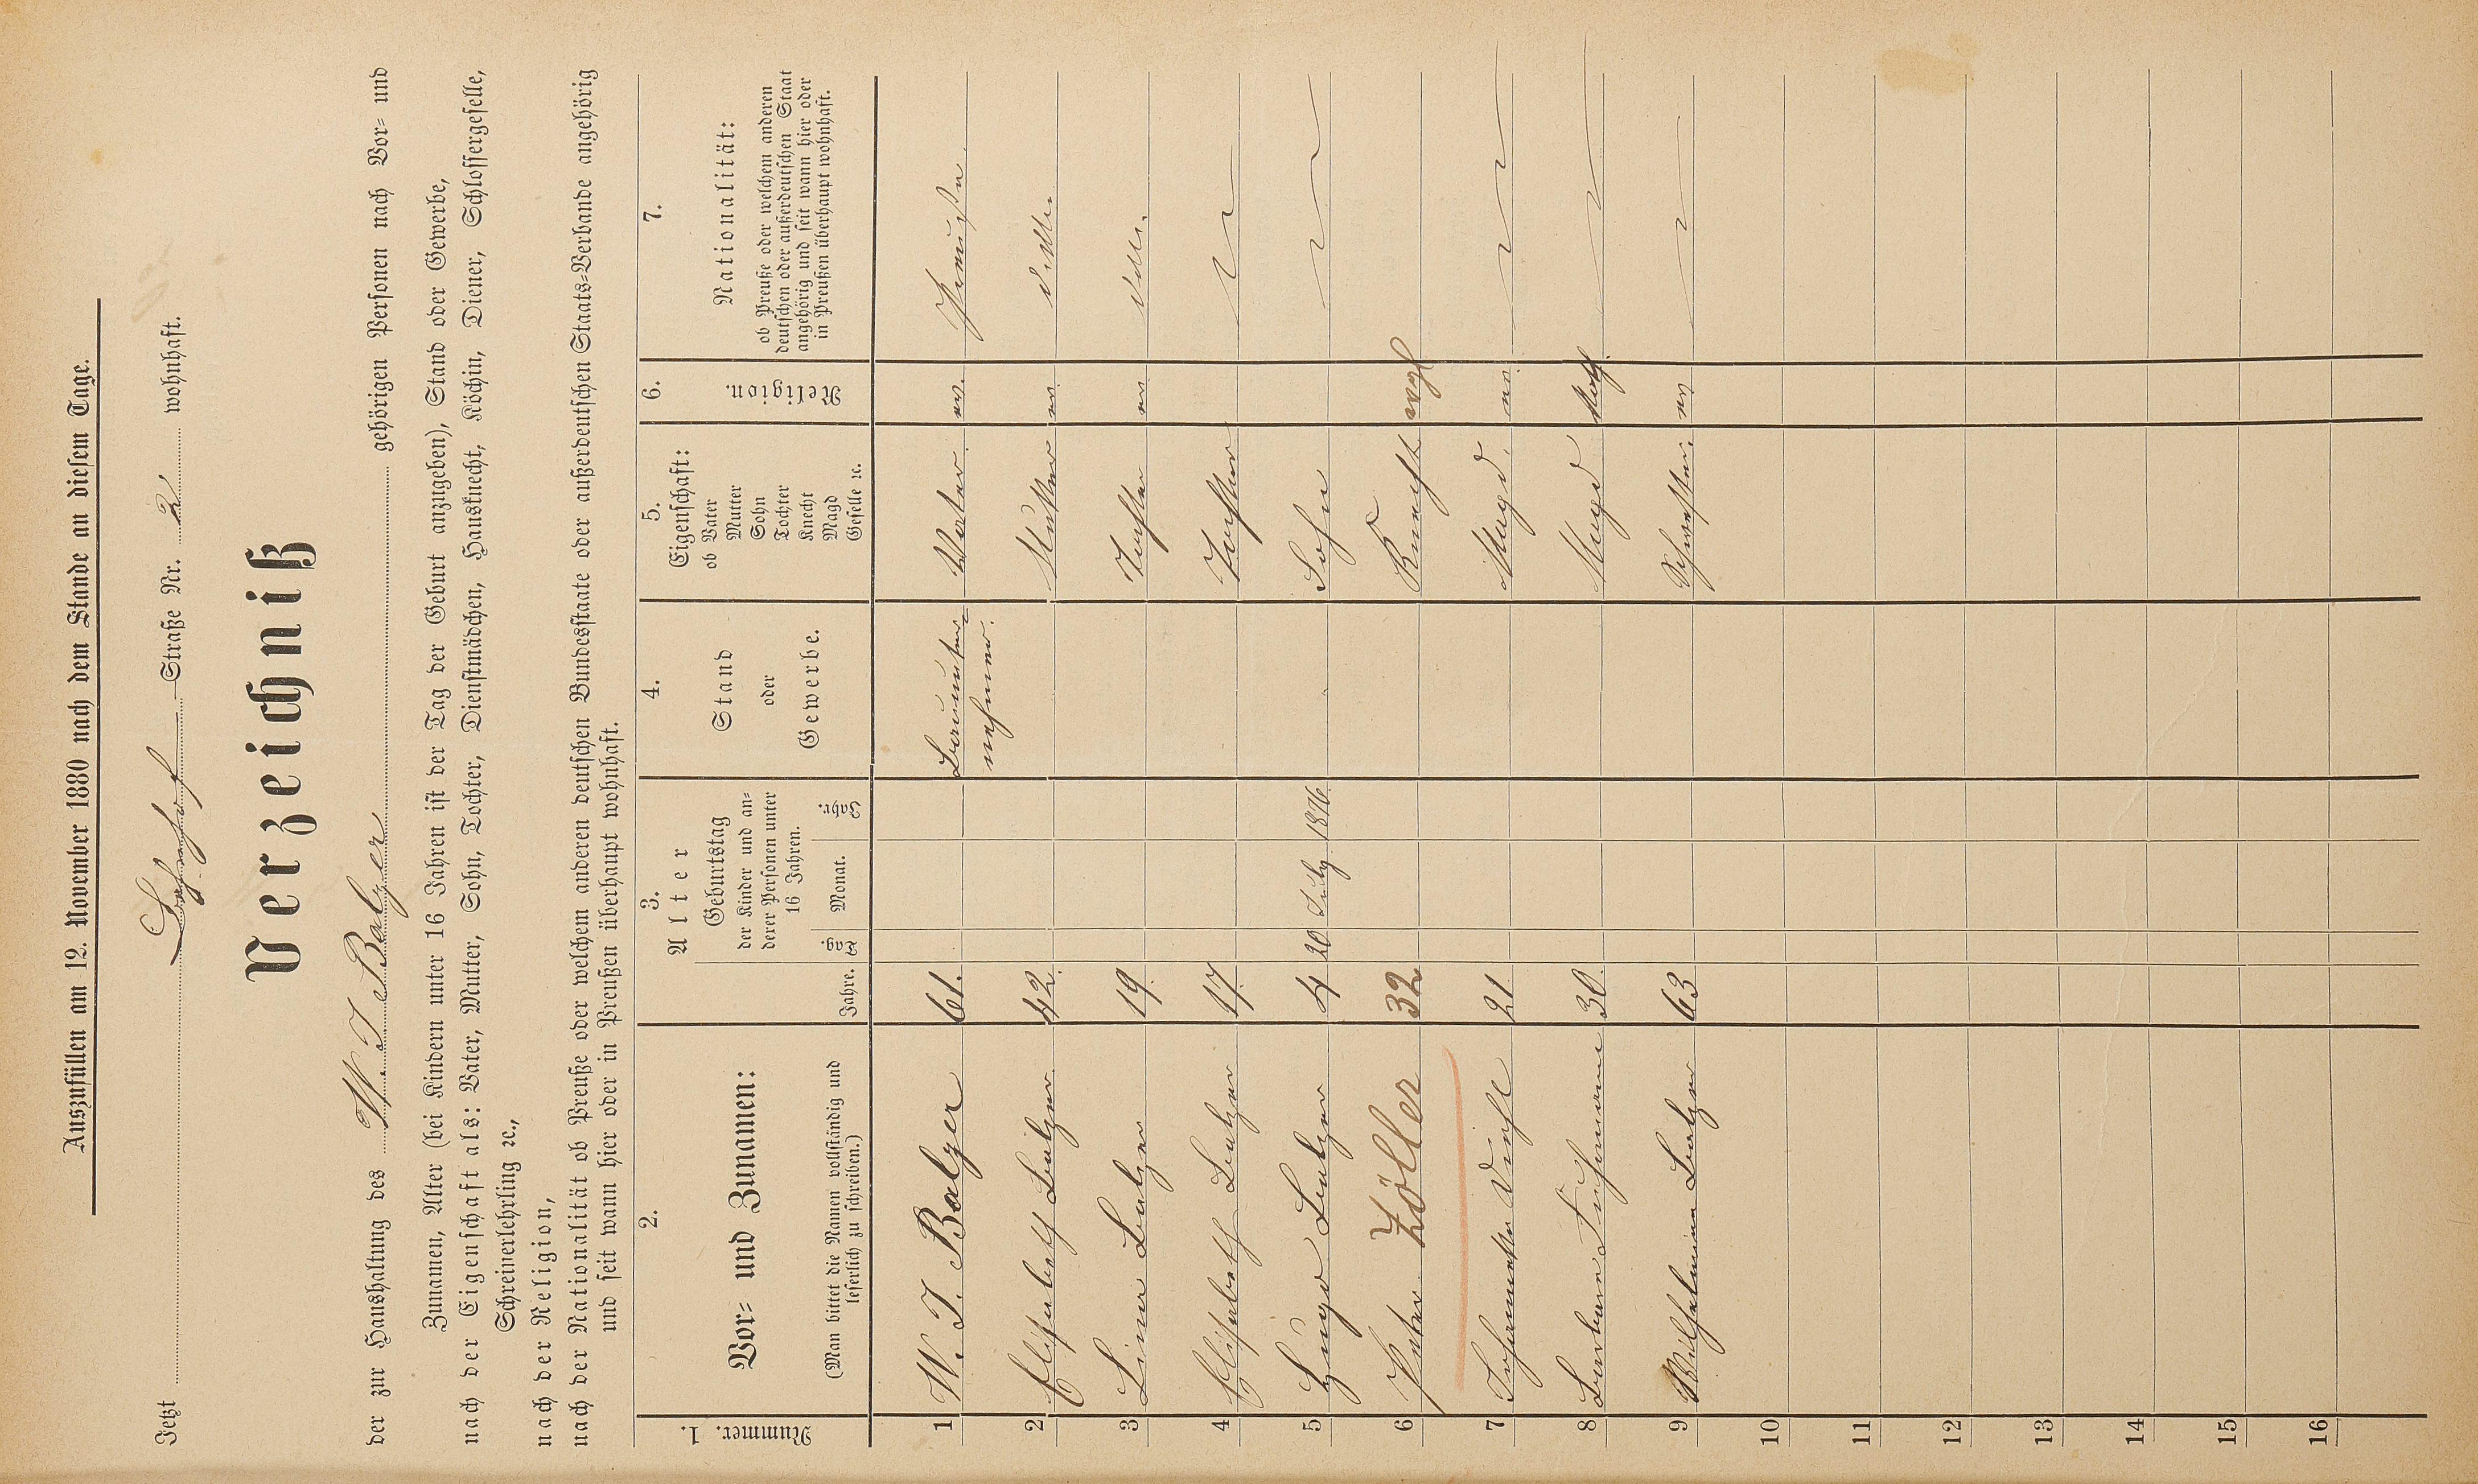 Auszufüllen am 12. November 1880 nach dem Stande an diesem Tage.
Jetzt Lehrhof Straße Nr. 2 wohnhaft.
Verzeichniß
der zur Haushaltung des W. J. Balzer gehörigen Personen nach Vor- und
Zunamen, Alter (bei Kindern unter 16 Jahren ist der Tag der Geburt anzugeben), Stand oder Gewerbe,
nach der Eigenschaft als: Vater, Mutter, Sohn, Tochter, Dienstmädchen, Hausknecht, Köchin, Diener, Schlossergeselle,
Schreinerlehrling ꝛc.,
nach der Religion,
nach der Nationalität ob Preuße oder welchem anderen deutschen Bundesstaate oder außerdeutschen Staats-Verbande angehörig
und seit wann hier oder in Preußen überhaupt wohnhaft.
1. Nummer.
2.
Vor- und Zunamen:
(Man bittet die Namen vollständig und
leserlich zu schreiben.)
3.
Alter
Jahre.
Geburtstag
der Kinder und an-
derer Personen unter
16 Jahren.
Tag. Monat. Jahr.
4.
Stand
oder
Gewerbe.
5.
Eigenschaft:
ob Vater
Mutter
Sohn
Tochter
Knecht
Magd
Geselle ꝛc.
6.
Religion.
7.
Nationalität:
ob Preuße oder welchem anderen
deutschen oder außerdeutschen Staat
angehörig und seit wann hier oder
in Preußen überhaupt wohnhaft.
1 W. J. Balzer 61. Bauunter= Vater. ev. Preußen.
nehmer.
2 Elisabeth Balzer 42. Mutter ev.
3 Lina Balzer 19. Tochter ev.
4 Elisabeth Balzer 17. Tochter
5 Hugo Balzer 4 20 July 1876. Sohn
6 Peter Zöller 32 Knecht evgl
7 21. Magd. ev.
8 Barbara 30. Magd kath.
9 Wilhelmina Balzer 63 Schwester. ev
10
11
12
13
14
15
16